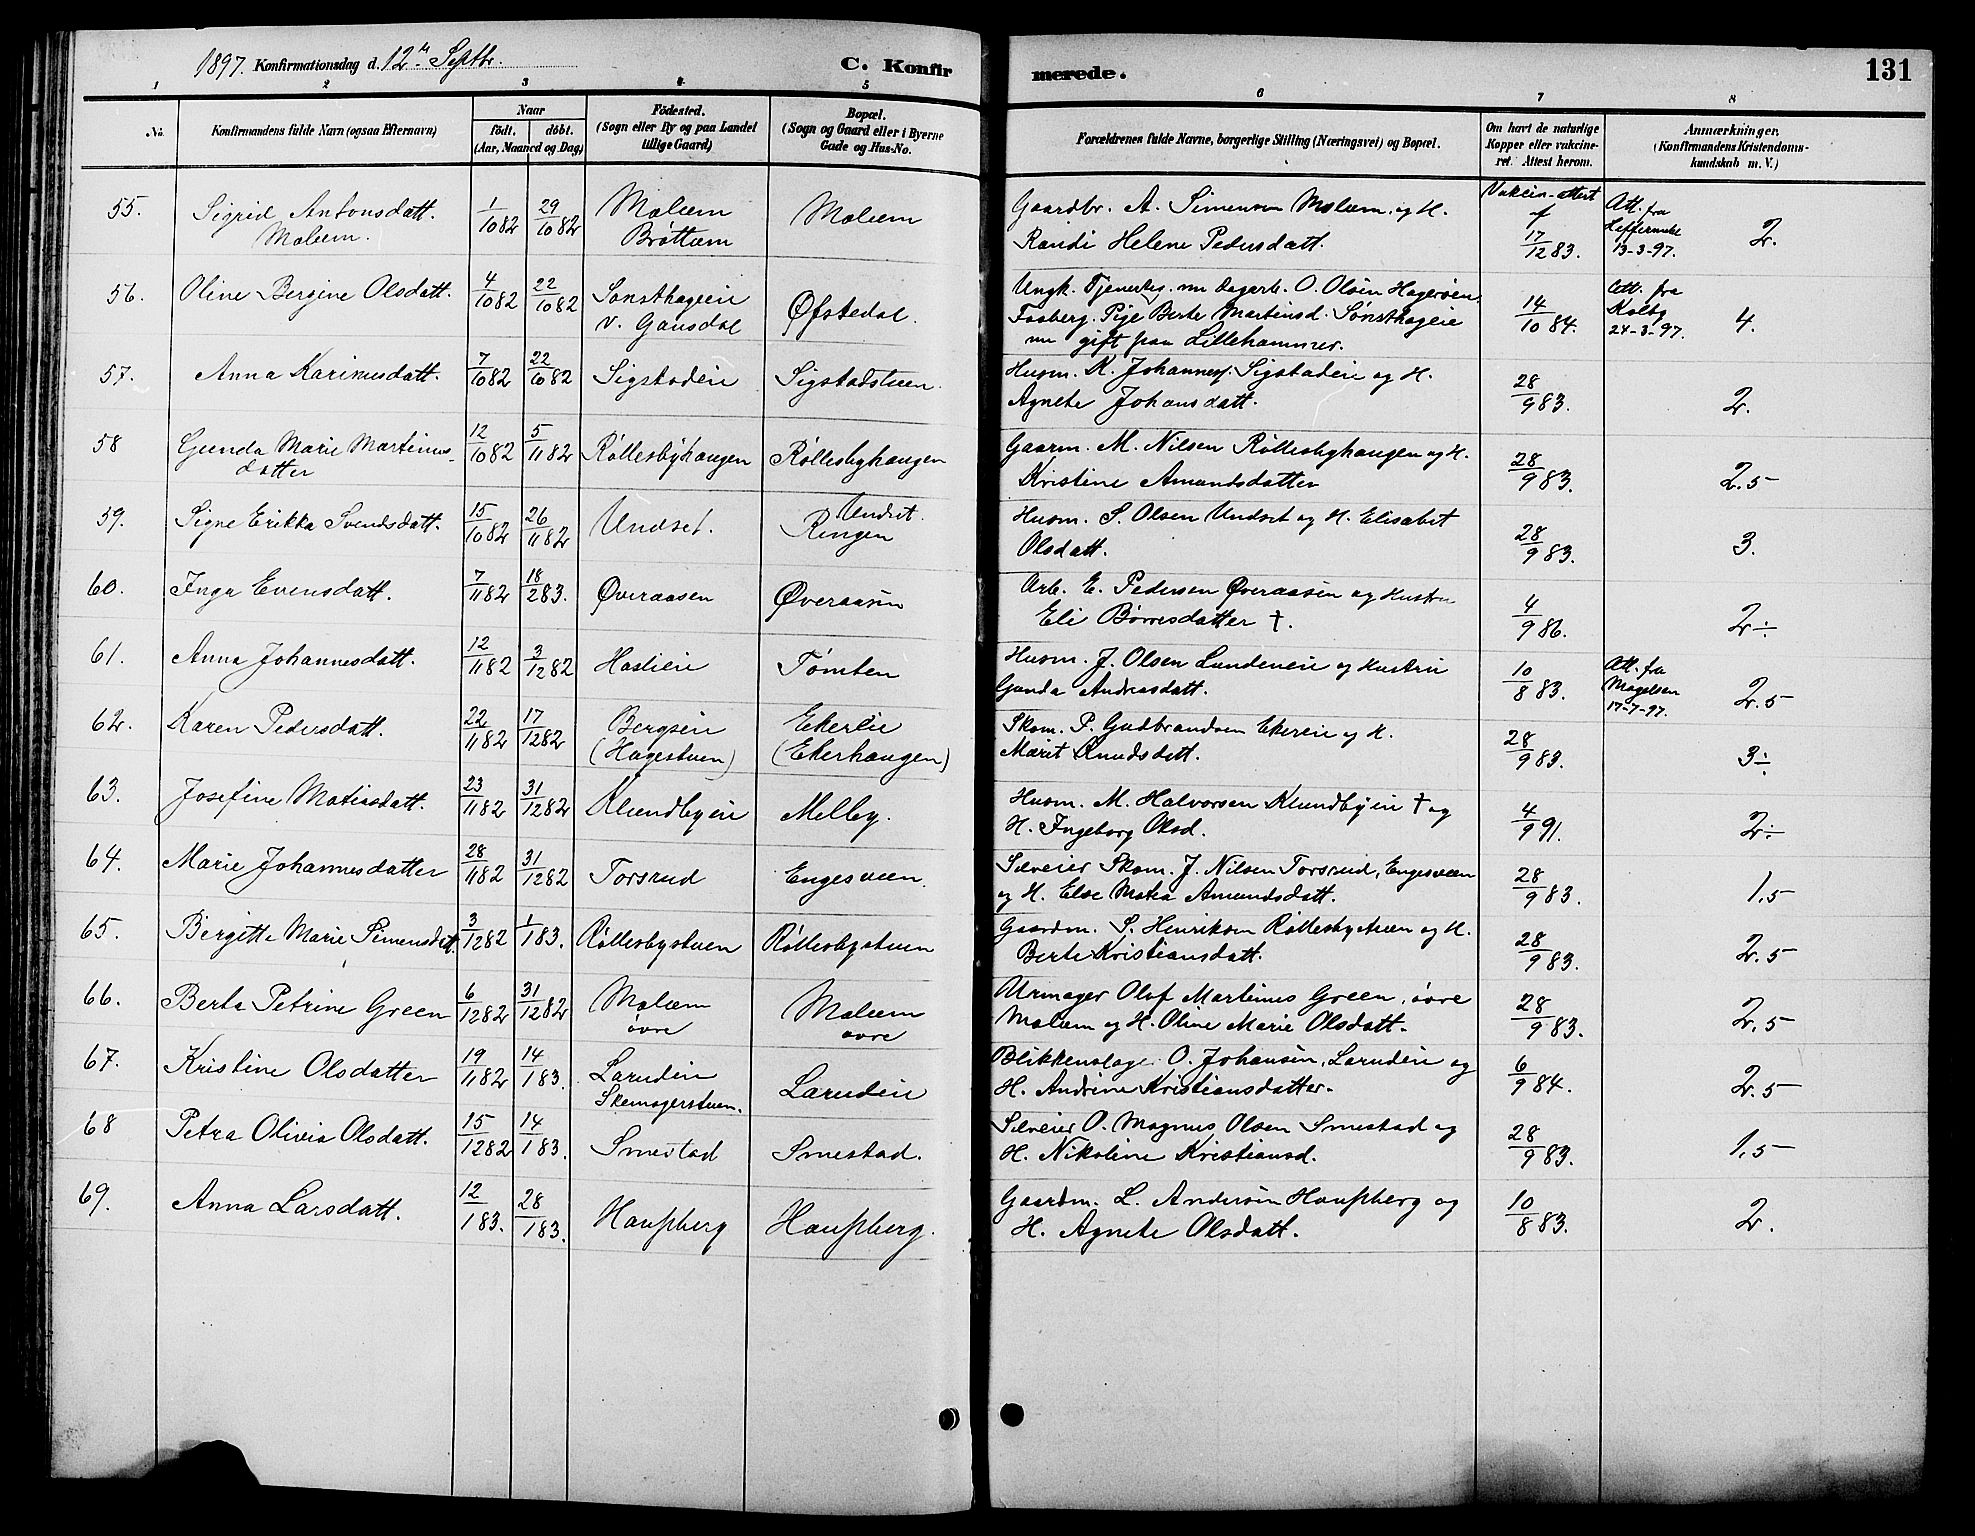 1897. Konfirmationsdag d. 12te Septbr.
C. Konfirmerede.
131
1 2 3 4 5 6 7 8
No.
Konfirmandens fulde Navn (ogsaa Efternavn)
Naar
födt. döbt.
(Aar, Maaned og Dag)
Födested.
(Sogn eller By og paa Landet
tillige Gaard)
Bopæl.
(Sogn og Gaard eller i Byerne
Gade og Hus-No.
Forældrenes fulde Navne, borgerlige Stilling (Næringsvei) og Bopæl.
Om havt de naturlige
Kopper eller vakcine-
ret. Attest herom.
Anmærkninger.
(Konfirmandens Kristendoms-
kundskab m. V.)
55. Sigrid Antonsdatt. 1/10 82 29/10 82 Malum Malum Gaardbr. A. Simensen Malum og H. Vakcin-attest Att. fra
Malum. Brøttum Randi Helene Pedersdatt. af 17/12 83. 13-3-97. 2.
56. Oline Bergine Olsdatt. 4/10 82 22/10 82 Sønsthageie Øfstedal. Ungk. Tjenestkg. nu dagarb. O. Olsen Hagerøen 14/10 84. Att. fra
v. Gausdal Faaberg. Pige Berte Martinusd. Sønsthageie Kolby 4.
nu gift paa Lillehammer. 24-3-97.
57. Anna Karinusdatt. 7/10 82 22/10 82 Sigstadeie Sigstadstuen. Husm. K. Johannesf. Sigstadeie og H. 28/9 83. 2.
Agnete Johansdatt.
58 Gunda Marie Martinus- 12/10 82 5/11 82 Røllesbyhaugen Røllesbyhaugen Gaarm. M. Nilsen Røllesbyhaugen og H. 28/9 83. 2.5
datter Kristine Amundsdatter
59. Signe Erikka Svendsdatt. 15/10 82 26/11 82 Undset. Undset. Husm. S. Olsen Undset og H. Elisabet 28/9 83. 3.
Ringen Olsdatt.
60. Inga Evensdatt. 7/11 82 18/2 83. Øveraasen Øveraasen Arb. E. Pedersen Øveraasen og Hustru 4/9 86. 2÷
Eli Børresdatter †.
61. Anna Johannesdatt. 12/11 82 3/12 82 Haslieie Tømten Husm. J. Olsen Lundeneie og Hustru 10/8 83. Att. fra
Gunda Andreasdatt. Magelsen 2.5
17-7-97.
62. Karen Pedersdatt. 22/11 82 17/12 82 Bergseie Ekerlie Skom. P. Gudbrandsen Ekereie og H. 28/9 83. 3÷
(Hagestuen) (Ekerhaugen) Marit Knudsdatt.
63. Josefine Matiasdatt. 23/11 82 31/12 82 Klundbyeie Melby. Husm. M. Halvorsen Klundbyeie † og 4/9 91. 2÷
H. Ingeborg Olsd.
64. Marie Johannesdatter 28/11 82 31/12 82 Torsrud Engesveen. Selveier Skom. J. Nilsen Torsrud, Engesveen 28/9 83. 1,5
og H. Else Matea Amundsdatt.
65. Bergitte Marie Simensdtt. 3/12 82 1/1 83. Røllesbystuen Røllesbystuen Gaardm. S. Henriksen Røllesbystuen og H. 28/9 83. 2.5
Berte Kristiansdatt.
66. Berta Petrine Green 6/12 82 31/12 82 Malum Malum Urmager Olof Martinus Green, øvre 28/9 83. 2,5
øvre øvre Malum og H. Oline Marie Olsdatt.
67. Kristine Olsdatter 19/11 82 14/1 83. Larudeie Larudeie Blikkenslage. O. Johansen, Larudeie og 6/9 84. 2.5
Skomagerstuen. H. Andrine Kristiansdatter.
68 Petra Olivia Olsdatt. 15/12 82 14/1 83. Smestad Smestad. Selveier O. Magnus Olsen Smestad og 28/9 83. 1,5
H. Nikoline Kristiansd.
69. Anna Larsdatt. 12/1 83. 28/1 83. Haugsberg Haugsberg. Gaardm. L. Andersen Haugsberg og 10/8 83. 2.
H. Agnete Olsdatt.